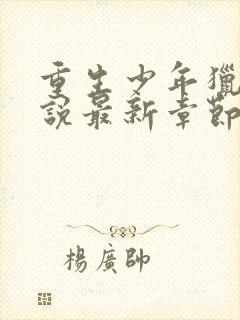 重生少年獵
說最新章節
楊廣帥